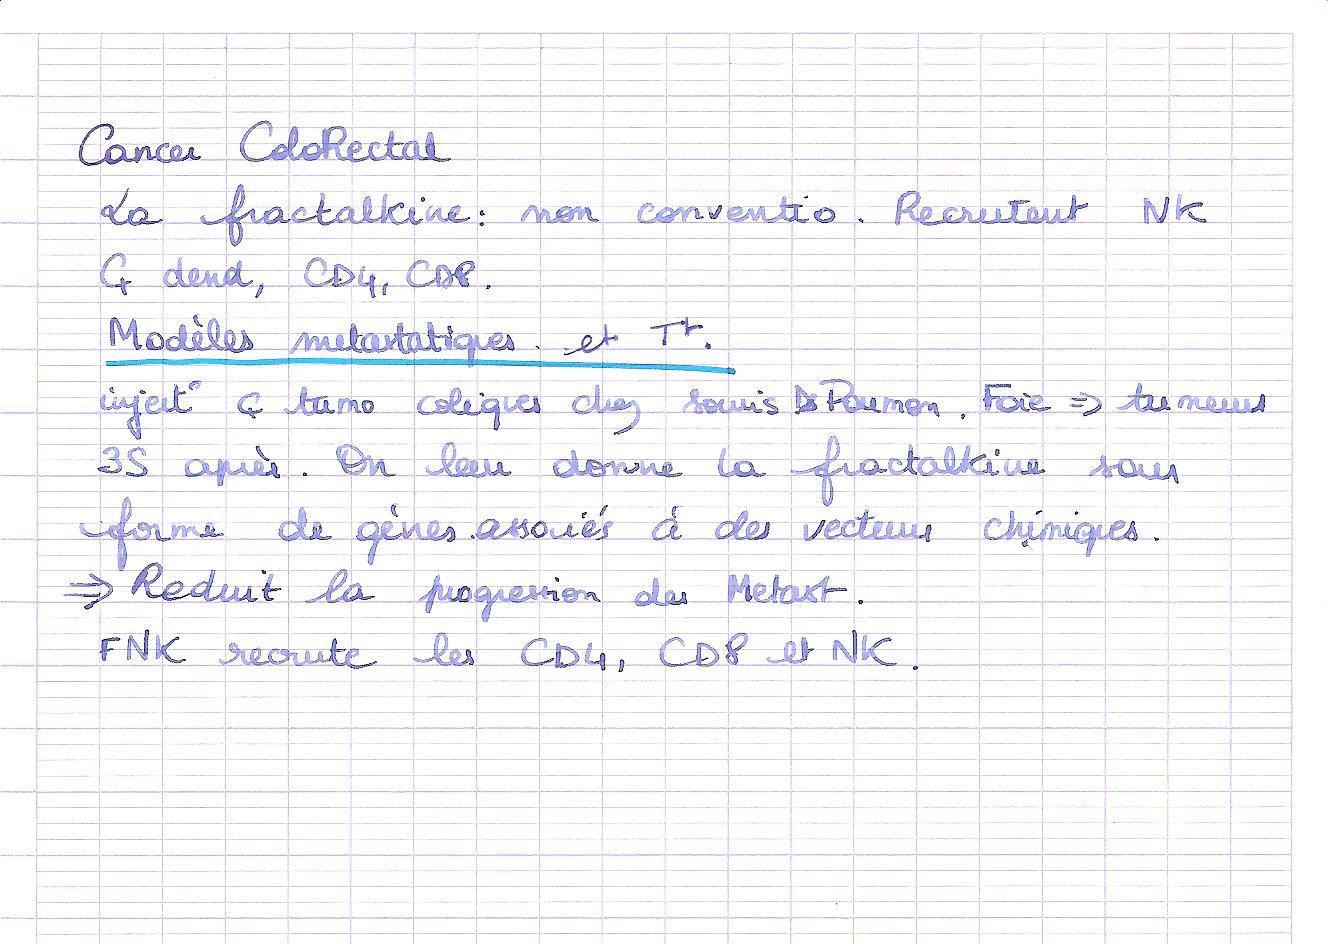 Cancer ColoRectal
La fractalkine: non conventio. Recrutent NK
C+ dend, CD4, CD8.
Modèles metastatiques. et Tt.
inject° ç tumo coliques chez souris Ds Poumon. Foie => tumeurs
3S après. On leur donne la fractalkine sous
forme de gènes associés à des vecteurs chimiques.
=> Reduit la progression des Metast.
FNK recrute les CD4, CD8 et NK.